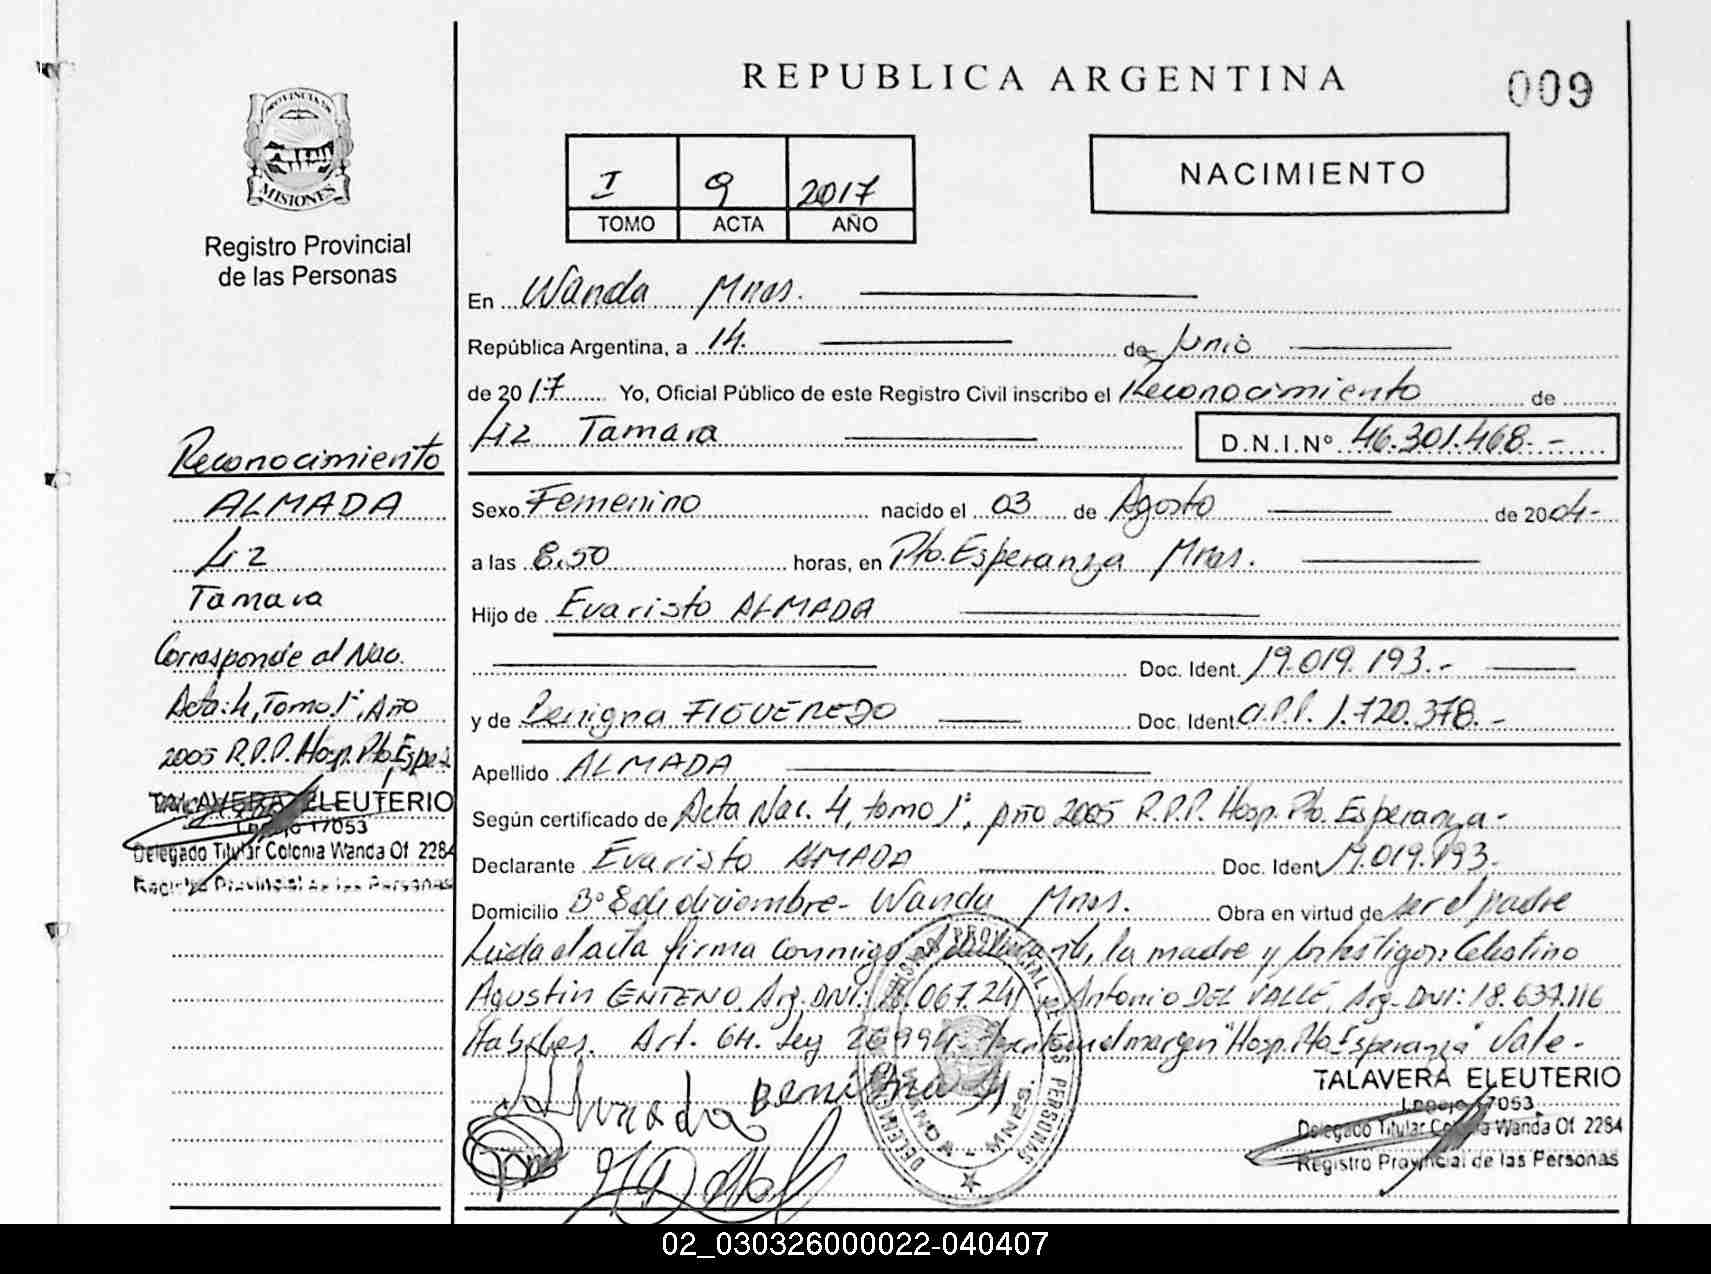 REPUBLICA ARGENTINA
009
PROVINCIA DE
MISIONES
Registro Provincial
de las Personas
I 9 2017
TOMO ACTA AÑO
NACIMIENTO
En Wanda Mnes.
República Argentina, a 14. de Junio
de 2017 Yo, Oficial Público de este Registro Civil inscribo el Reconocimiento de
Liz Tamara D.N.I.Nº 46.301.468.-
Sexo Femenino nacido el 03 de Agosto de 2004-
a las 8,50 horas, en Pto. Esperanza Mnes.
Hijo de Evaristo ALMADA
Doc. Ident. 19.019.193.-
y de Benigna FIGUEREDO Doc. Ident. C.P.P. 1.720.378.-
Apellido ALMADA
Según certificado de Acta Nac. 4, tomo 1º, Año 2005 R.P.P. Hosp. Pto. Esperanza-
Declarante Evaristo ALMADA Doc. Ident 19.019.193-
Domicilio Bº 8 de diciembre- Wanda Mnes. Obra en virtud de ser el padre
Leida el acta firma conmigo el declarante, la madre y los testigos: Celestino
Agustin CENTENO, Arg. DNI: 067.241 Antonio DEL VALLE, Arg. DNI: 18.637.116
Habiles. Art. 64. Ley 26994 el margen "Hosp. Pto Esperanza" Vale-
Reconocimiento
ALMADA
Liz
Tamara
Corresponde al Nac.
Acta: 4, Tomo 1º, Año
2005 R.P.P. Hosp. Pto Espe
TALAVERA ELEUTERIO
Legajo 17053
Delegado Titular Colonia Wanda Of 2284
Registro Provincial de las Personas
Almada Benigna
TALAVERA ELEUTERIO
Legajo 17053
Delegado Titular Colonia Wanda Of 2284
Registro Provincial de las Personas
02_030326000022-040407